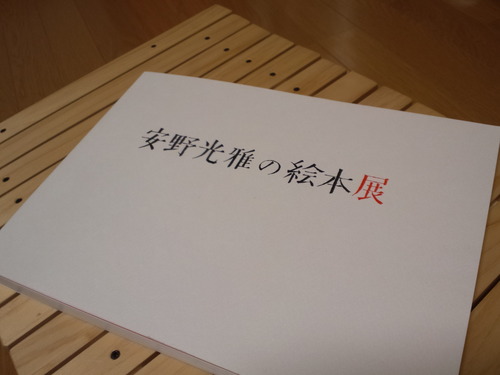 安野光雅の絵本展